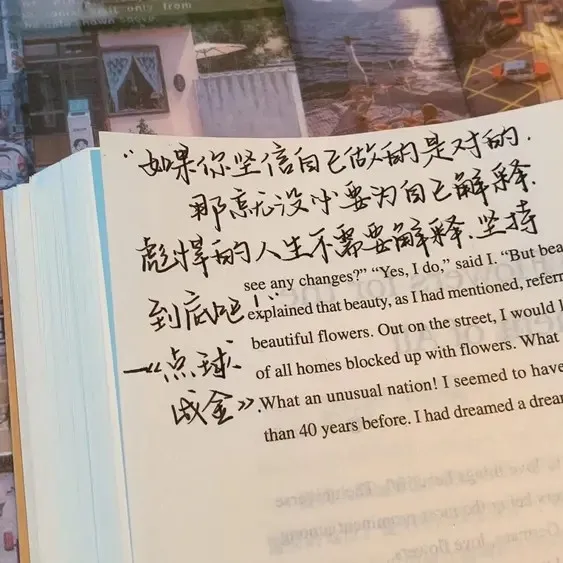 only from
"如果你坚信自己做的是对的.
那就没必要为自己解释.
彪悍的人生不需要解释.坚持
到底吧!"
—《点球
成金》.
see any changes?" "Yes, I do," said I. "But bea
explained that beauty, as I had mentioned, referr
beautiful flowers. Out on the street, I would l
of all homes blocked up with flowers. What
What an unusual nation! I seemed to have
than 40 years before. I had dreamed a drea